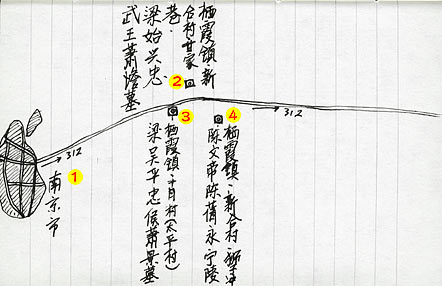 栖霞鎮新
合村甘家
巷.
梁始兴忠
武王萧憺墓
2
3
栖霞鎮·十月村(太平村)
梁吴平忠侯萧景墓
4
栖霞鎮·新合村·狮子冲
陈文帝陈蒨永宁陵
312
312
1
南京市